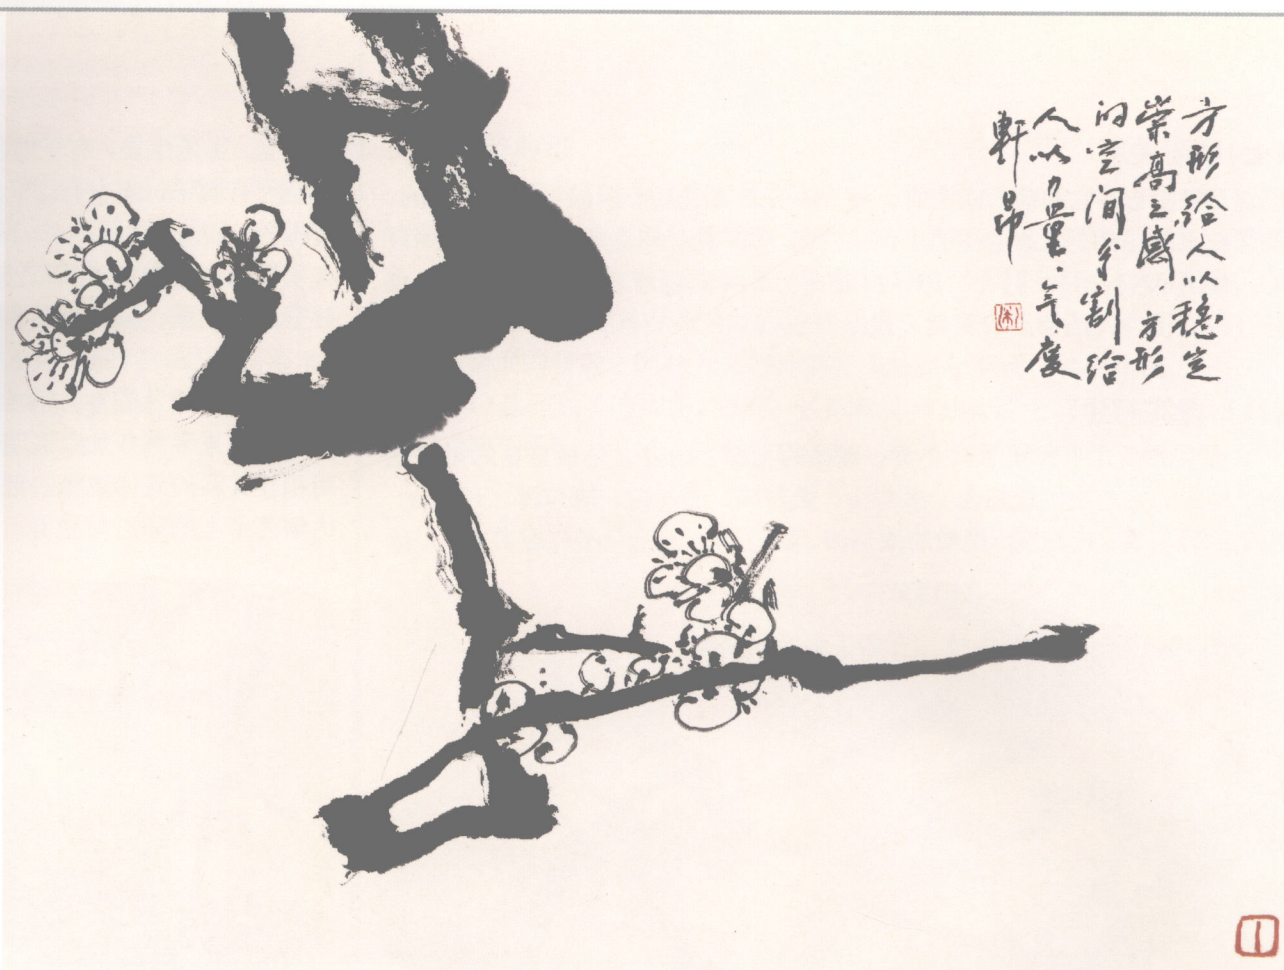 方形给人以穩定
崇高之感，方形
的空间分割给
人以力量、气度
軒昂